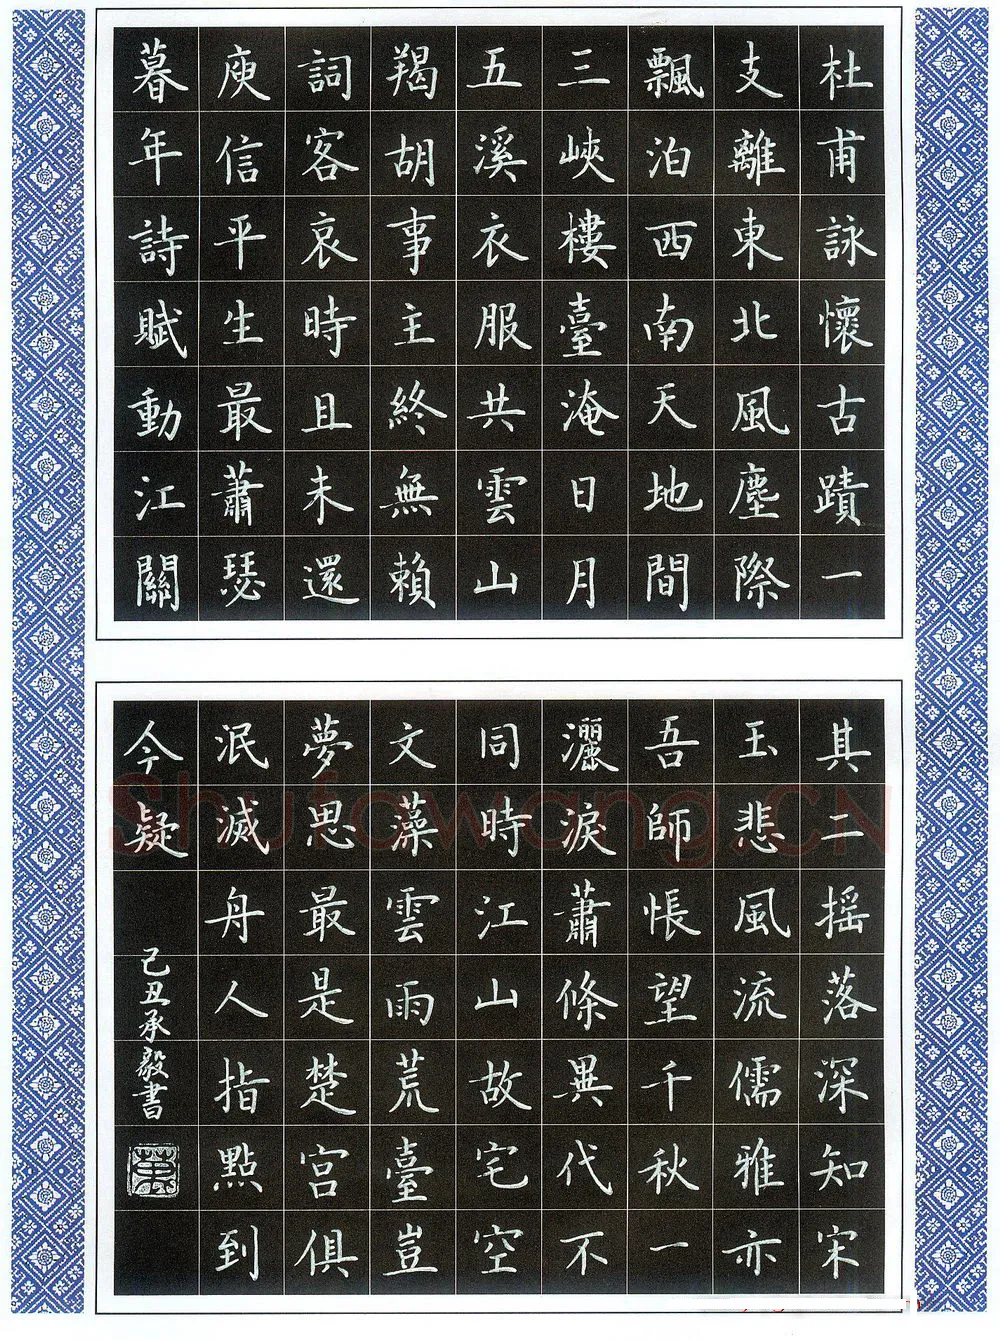 杜甫詠懷古蹟一
支離東北風塵際
飄泊西南天地間
三峽樓臺淹日月
五溪衣服共雲山
羯胡事主終無賴
詞客哀時且未還
庾信平生最蕭瑟
暮年詩賦動江關
其二摇落深知宋
玉悲風流儒雅亦
吾師悵望千秋一
灑淚蕭條異代不
同時江山故宅空
文藻雲雨荒臺豈
夢思最是楚宮俱
泯滅舟人指點到
今疑
己丑承毅書
Shufawang.CN